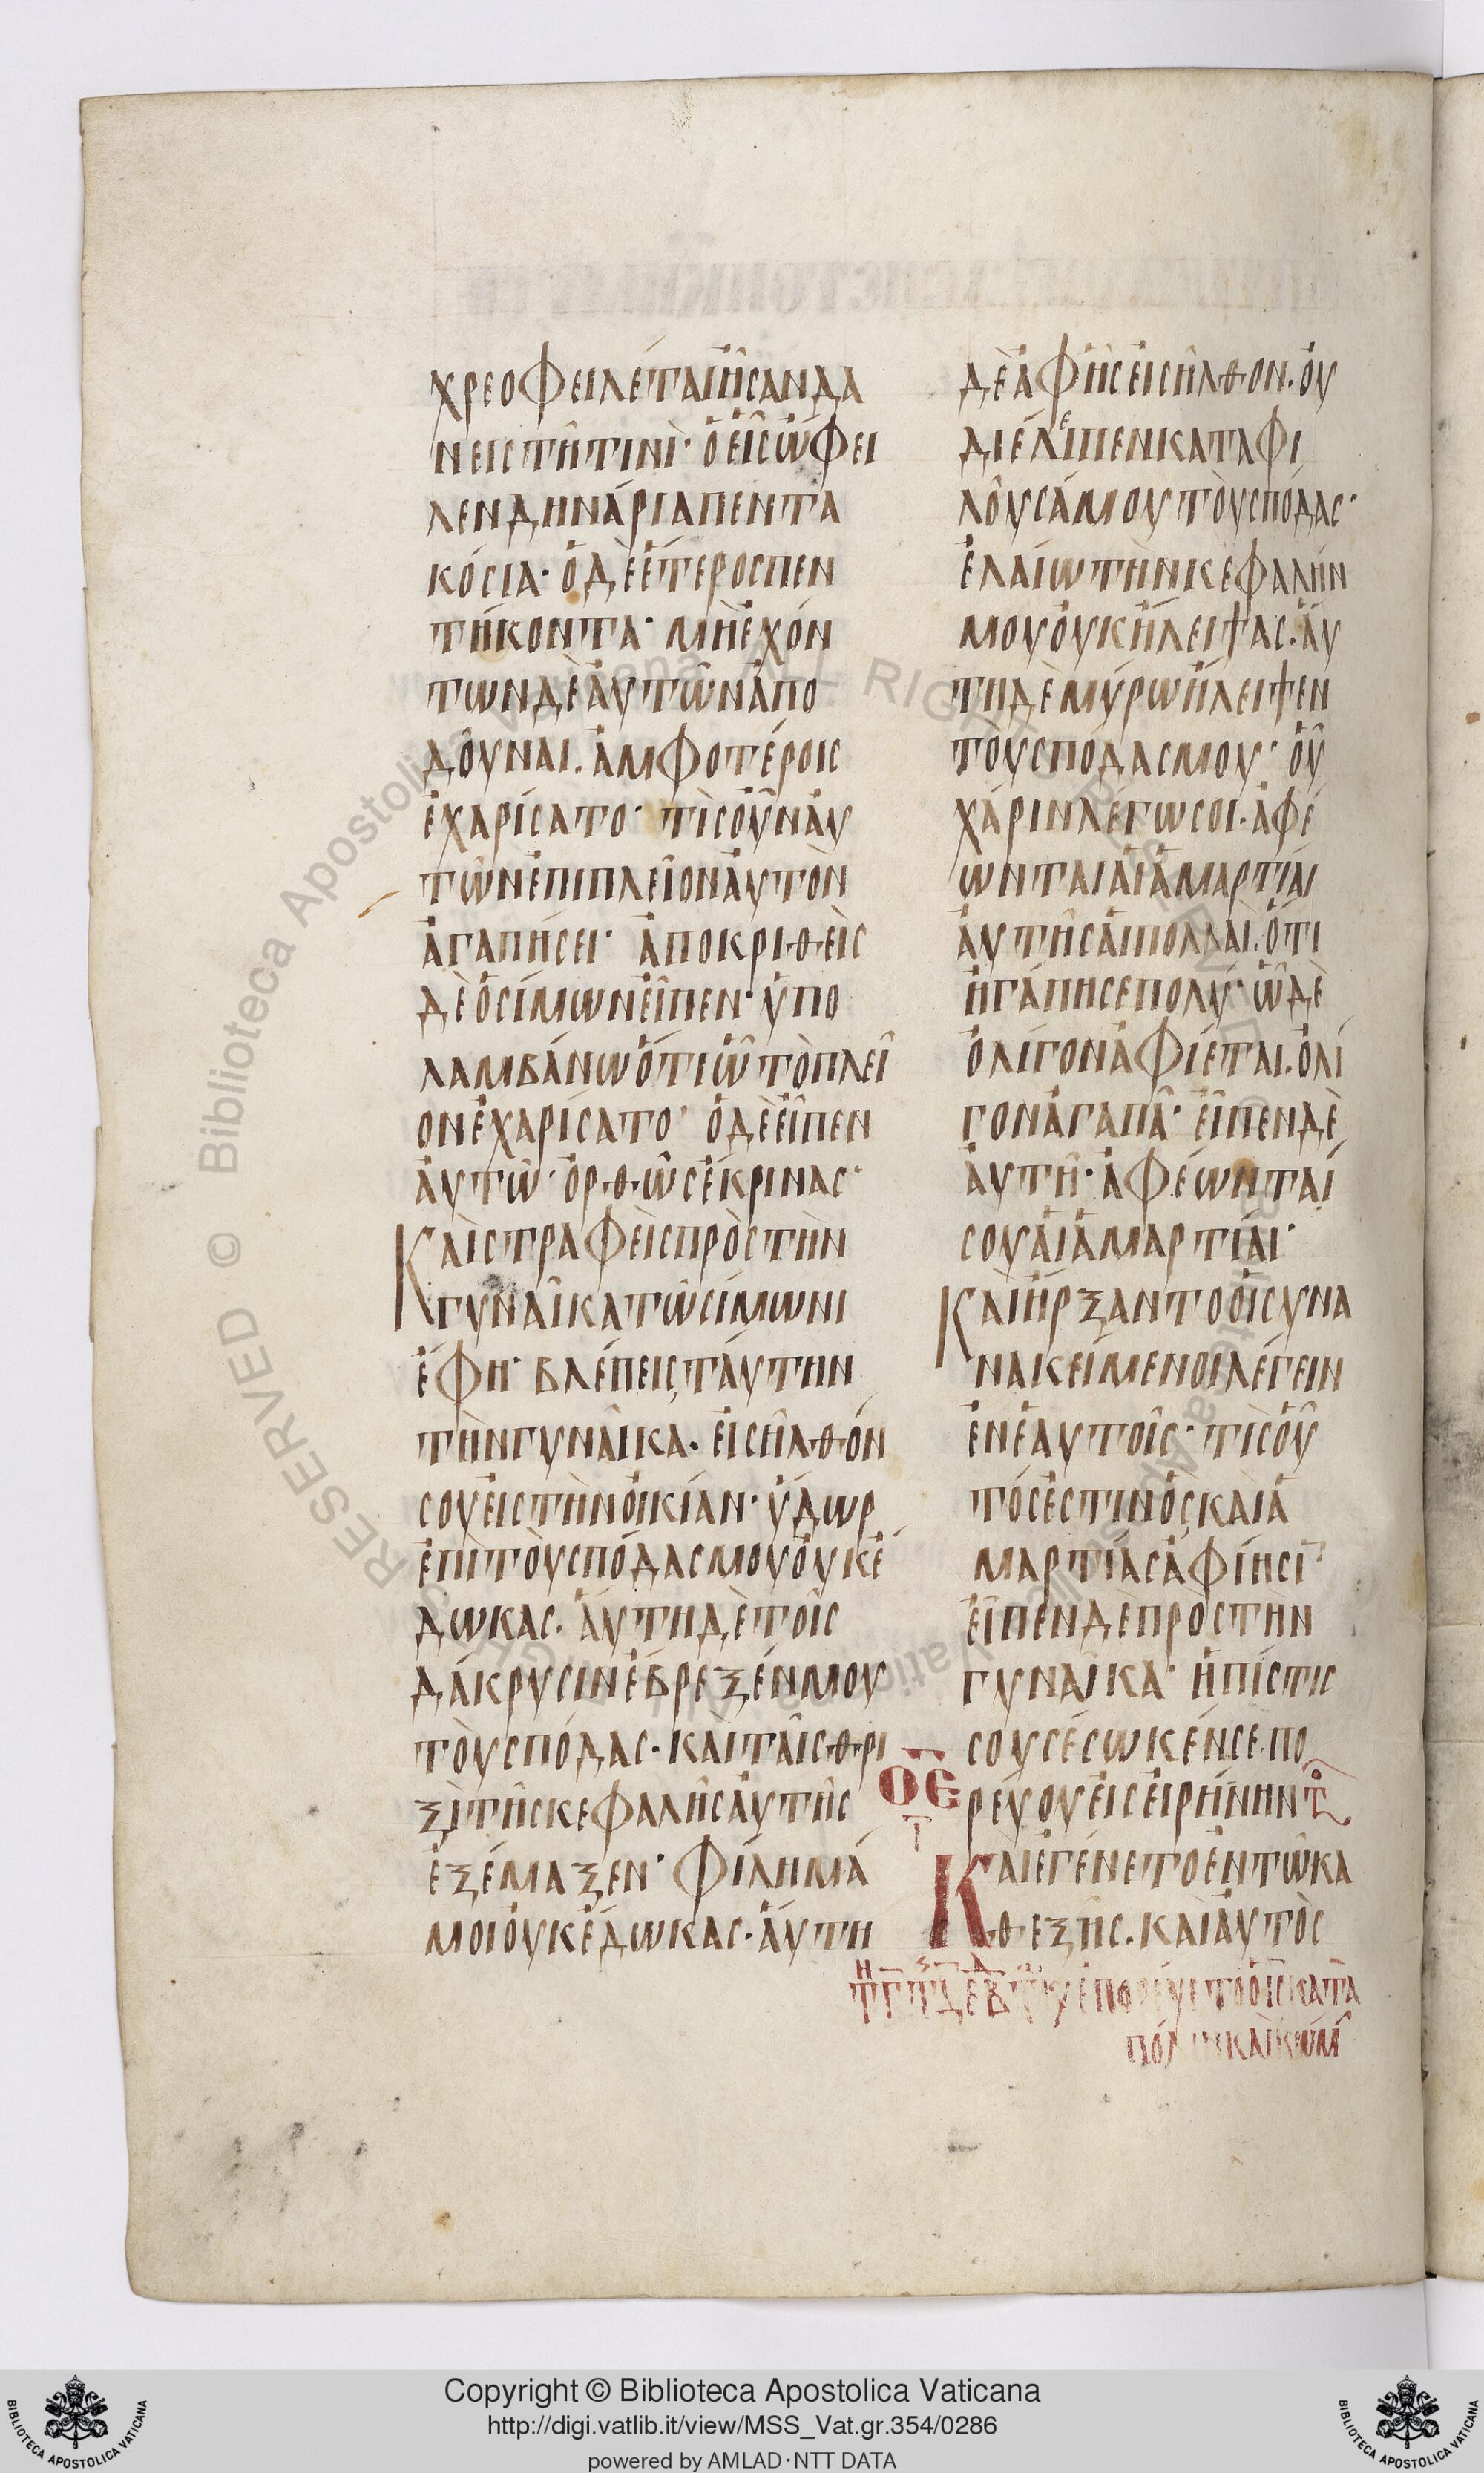 χρεοφειλέται ἦσαν δα
νειστῆ τινὶ· ὁ εἷς ὤφει
λεν δηνάρια πεντα
κόσια· ὁ δὲ ἕτερος πεν
τήκοντα· μὴ ἐχόν
των δὲ ἀυτῶν ἀπο
δοῦναι. ἀμφοτέροις
ἐχαρίσατο· τὶς οὖν ἀυ
τῶν ἐπιπλεῖον ἀυτὸν
ἀγαπήσει· ἀποκριθεὶς
δὲ ὁ σίμων εἶπεν· ὑπο
λαμβάνω ὅτι ὧ τὸ πλεῖ
ον ἐχαρίσατο· ὁ δὲ εἶπεν
ἀυτῶ· ὀρθῶς ἔκρινας·
Καὶ στραφεὶς πρὸς τὴν
γυναῖκα τῶ σίμωνι
ἔφη· βλέπεις ταύτην
τὴν γυναῖκα. εἰσῆλθόν
σου εἰς τὴν οἰκίαν· ὕδωρ
ἐπὶ τοὺς πόδας μου οὐκ ἔ
δωκας. ἅυτη δὲ τοῖς
δάκρυσιν ἔβρεξέν μου
τοὺς πόδας. καὶ ταῖς θρι
ξὶ τῆς κεφαλῆς ἀυτῆς
ἐξέμαξεν· φίλημά
μοι οὐκ ἔδωκας. ἅυτη
δὲ ἀφ ἧς εἰσῆλθον. ὀυ
διέλειπεν καταφι
λοῦσά μου τοὺς πόδας·
ἐλαίω τὴν κεφαλήν
μου οὐκ ἤλειψας. ἅυ
τη δὲ μύρω ἤλειψεν
τοὺς πόδας μου· οὗ
χάριν λέγω σοι. ἀφέ
ωνται αἱ ἁμαρτίαι
ἀυτῆς αἱ πολλαί. ὅτι
ἠγάπησε πολύ· ὧ δὲ
ὀλίγον ἀφίεται. ὀλί
γον ἀγαπᾶ· εἶπεν δὲ
ἀυτῆ· ἀφέωνταί
σου αἱ ἁμαρτίαι·
Καὶ ἤρξαντο οἱ συνα
νακείμενοι λέγειν
ἐν ἑαυτοῖς· τὶς οὗ
τός ἐστιν ὃς καὶ ἁ
μαρτίας ἀφίησι
εἶπεν δὲ πρὸς τὴν
γυναῖκα· ἡ πίστις
σου σέσωκέν σε πο
ΟΕ
ρέυου εἰς εἰρήνην τ
Καὶ ἐγένετο ἐν τῶ κα
θεξῆς. καὶ ἀυτὸς
ἐπορεύετο ὁ ις κατὰ
πόλιν καὶ κώμ
Copyright © Biblioteca Apostolica Vaticana
http://digi.vatlib.it/view/MSS_Vat.gr.354/0286
powered by AMLAD·NTT DATA